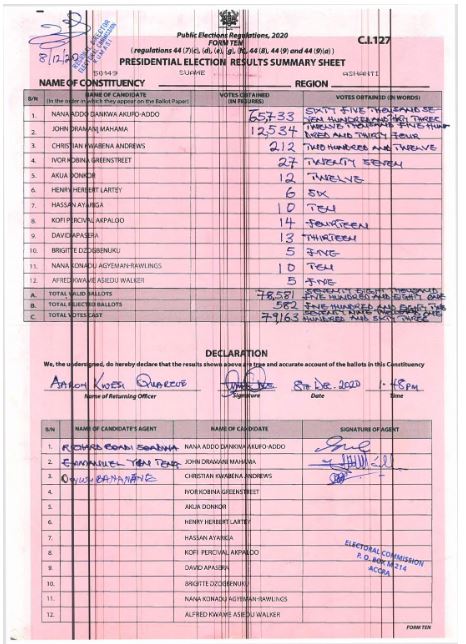 Public Elections Regulations, 2020
FORM TEN
C.I.127
(regulations 44 (7)(c), (d), (e), (g), (h), 44(8), 44 (9) and 44(9)(a))
8/12/20
PRESIDENTIAL ELECTION RESULTS SUMMARY SHEET
50149 SUAME ASHANTI
NAME OF CONSTITUENCY REGION
S/N NAME OF CANDIDATE (In the order in which they appear on the Ballot Paper) VOTES OBTAINED (IN FIGURES) VOTES OBTAINED (IN WORDS)
1. NANA ADDO DANKWA AKUFO-ADDO 65733 SIXTY FIVE THOUSAND SE
VEN HUNDRED AND THIRTY THREE
2. JOHN DRAMANI MAHAMA 12534 TWELVE THOUSAND FIVE HUND
RED AND THIRTY FOUR
3. CHRISTIAN KWABENA ANDREWS 212 TWO HUNDRED AND TWELVE
4. IVOR KOBINA GREENSTREET 27 TWENTY SEVEN
5. AKUA DONKOR 12 TWELVE
6. HENRY HERBERT LARTEY 6 SIX
7. HASSAN AYARIGA 10 TEN
8. KOFI PERCIVAL AKPALOO 14 FOURTEEN
9. DAVID APASERA 13 THIRTEEN
10. BRIGITTE DZOGBENUKU 5 FIVE
11. NANA KONADU AGYEMAN-RAWLINGS 10 TEN
12. ALFRED KWAME ASIEDU WALKER 5 FIVE
A. TOTAL VALID BALLOTS 78,581 SEVENTY EIGHT THOUSAND
FIVE HUNDRED AND EIGHT ONE
B. TOTAL REJECTED BALLOTS 582 FIVE HUNDRED AND EIGHT TWO
C. TOTAL VOTES CAST 79163 SEVENTY NINE THOUSAND ONE
HUNDRED AND SIXTY THREE
DECLARATION
We, the undersigned, do hereby declare that the results shown above are true and accurate account of the ballots in this Constituency
AARON KWESI 8TH DEC. 2020
Name of Returning Officer Signature Date Time
S/N NAME OF CANDIDATE'S AGENT NAME OF CANDIDATE SIGNATURE OF AGENT
1. RICHARD NANA ADDO DANKWA AKUFO-ADDO
2. EMMANUEL JOHN DRAMANI MAHAMA
3. CHRISTIAN KWABENA ANDREWS
4. IVOR KOBINA GREENSTREET
5. AKUA DONKOR
6. HENRY HERBERT LARTEY
7. HASSAN AYARIGA
8. KOFI PERCIVAL AKPALOO
9. DAVID APASERA
10. BRIGITTE DZOGBENUKU
11. NANA KONADU AGYEMAN-RAWLINGS
12. ALFRED KWAME ASIEDU WALKER
ELECTORAL COMMISSION
P. O. BOX M 214
ACCRA
FORM TEN